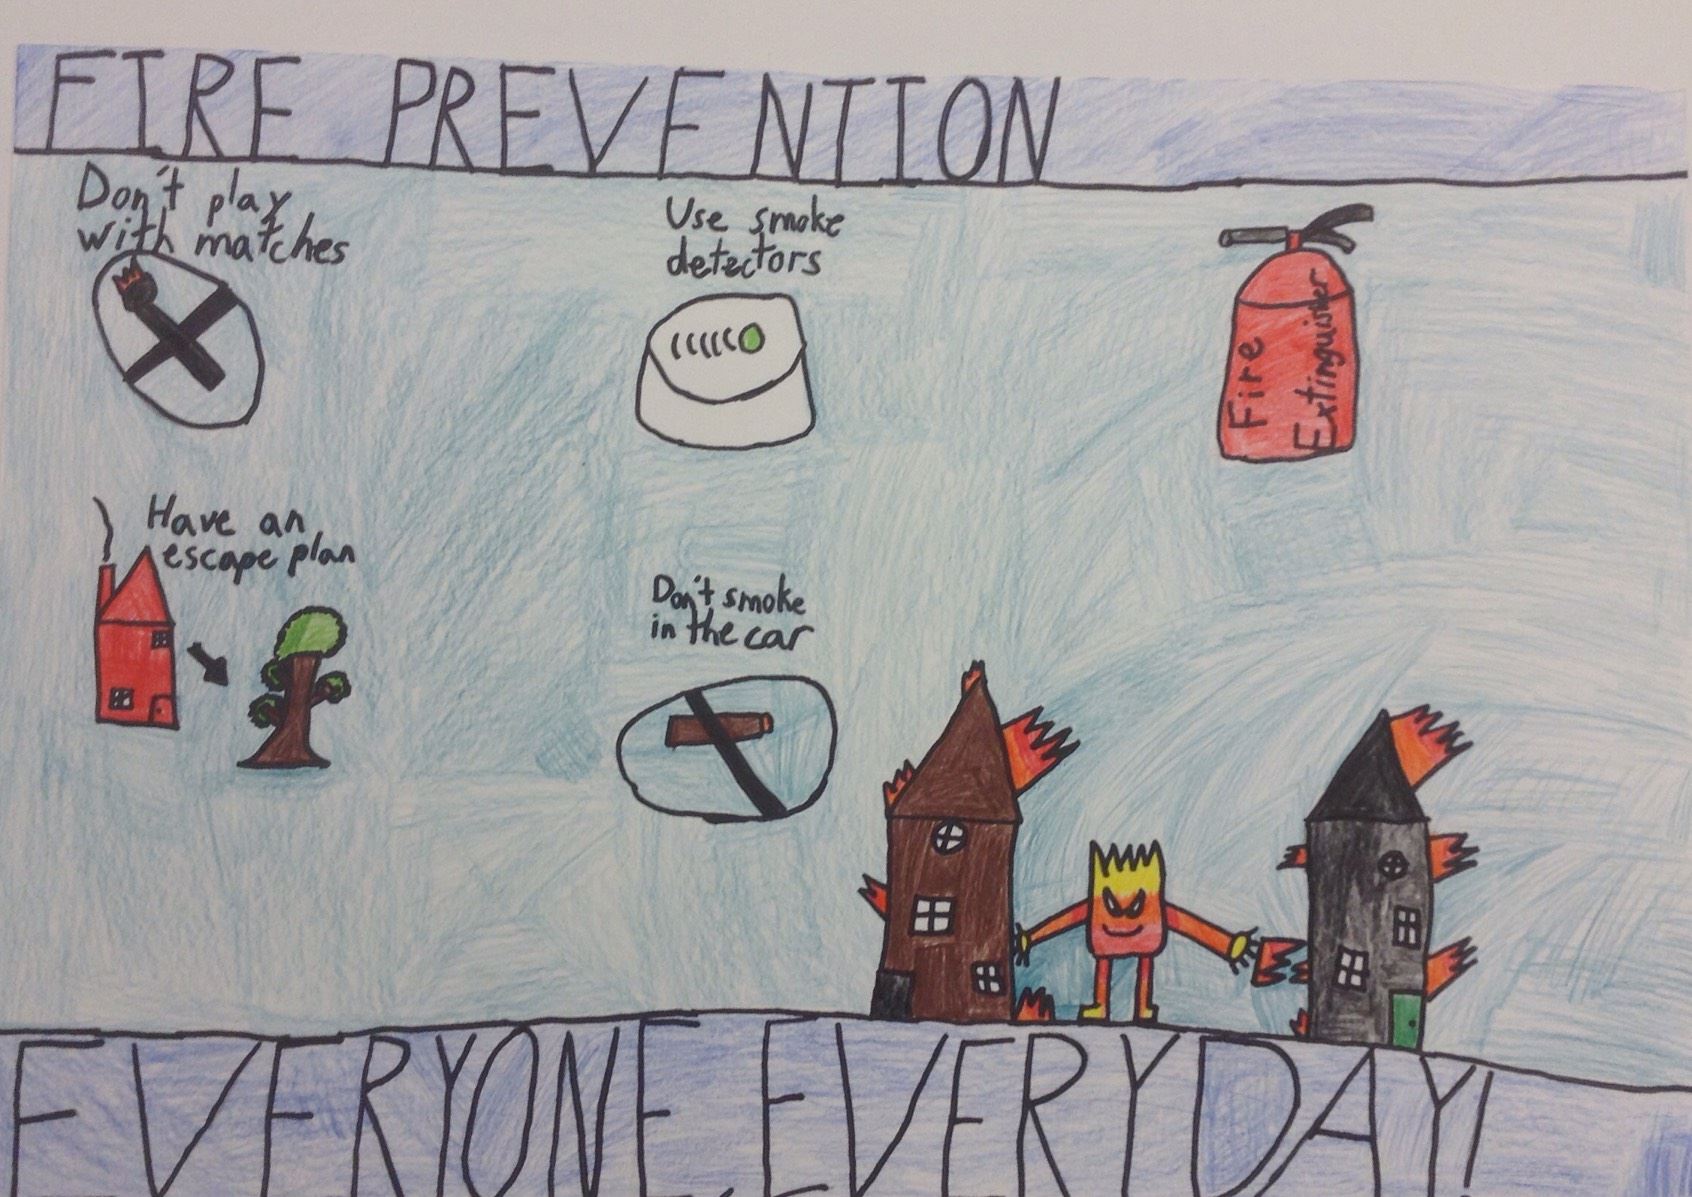 FIRE PREVENTION
Don't play
with matches
Use smoke
detectors
Fire
Extinguisher
Have an
escape plan
Don't smoke
in the car
EVERYONE, EVERYDAY!